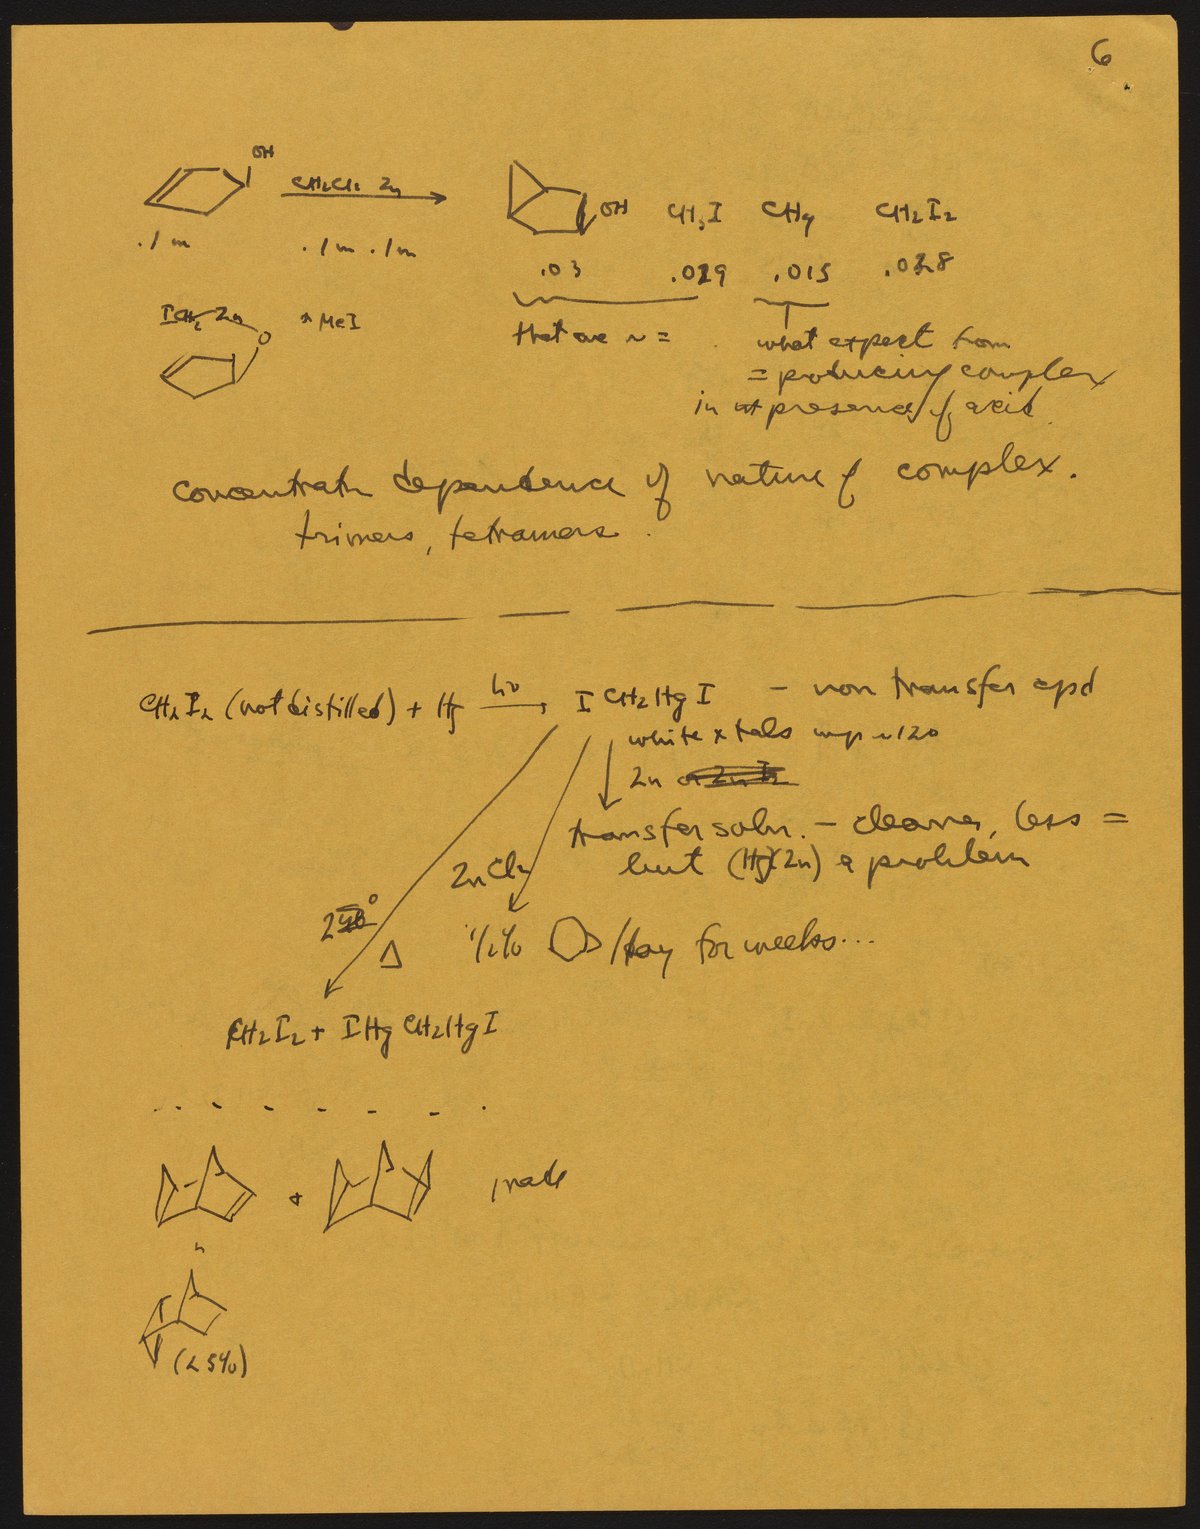 6
OH
CH2Cl2 Zn
OH CH3I CH4 CH2I2
.1 m .1 m .1 m
.03 .029 .015 .028
ICH2 Zn O + MeI
that are ~ = what expect from
= producing complex
in presence of acid
concentratn dependence of nature of complex.
trimers, tetramers.
CH2I2 (not distilled) + Hg hν ICH2HgI – non transfer cpd
white xtals mp ~120
Zn
transfer soln. – cleaner, less =
but (Hg)(Zn) a problem
ZnCl2
Δ
1/2% /day for weeks...
CH2I2 + IHgCH2HgI
+ made
(<5%)